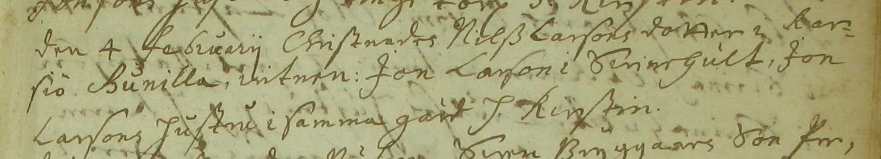 den 4 Februarij Christnades Nilß Larsons dotter i Kar=
siö Gunilla, vitnen: Jon Larson i Sვinehult, Jon
Larsons Hustru i samma gård H. Kerstin.
Byggaars Son Per,